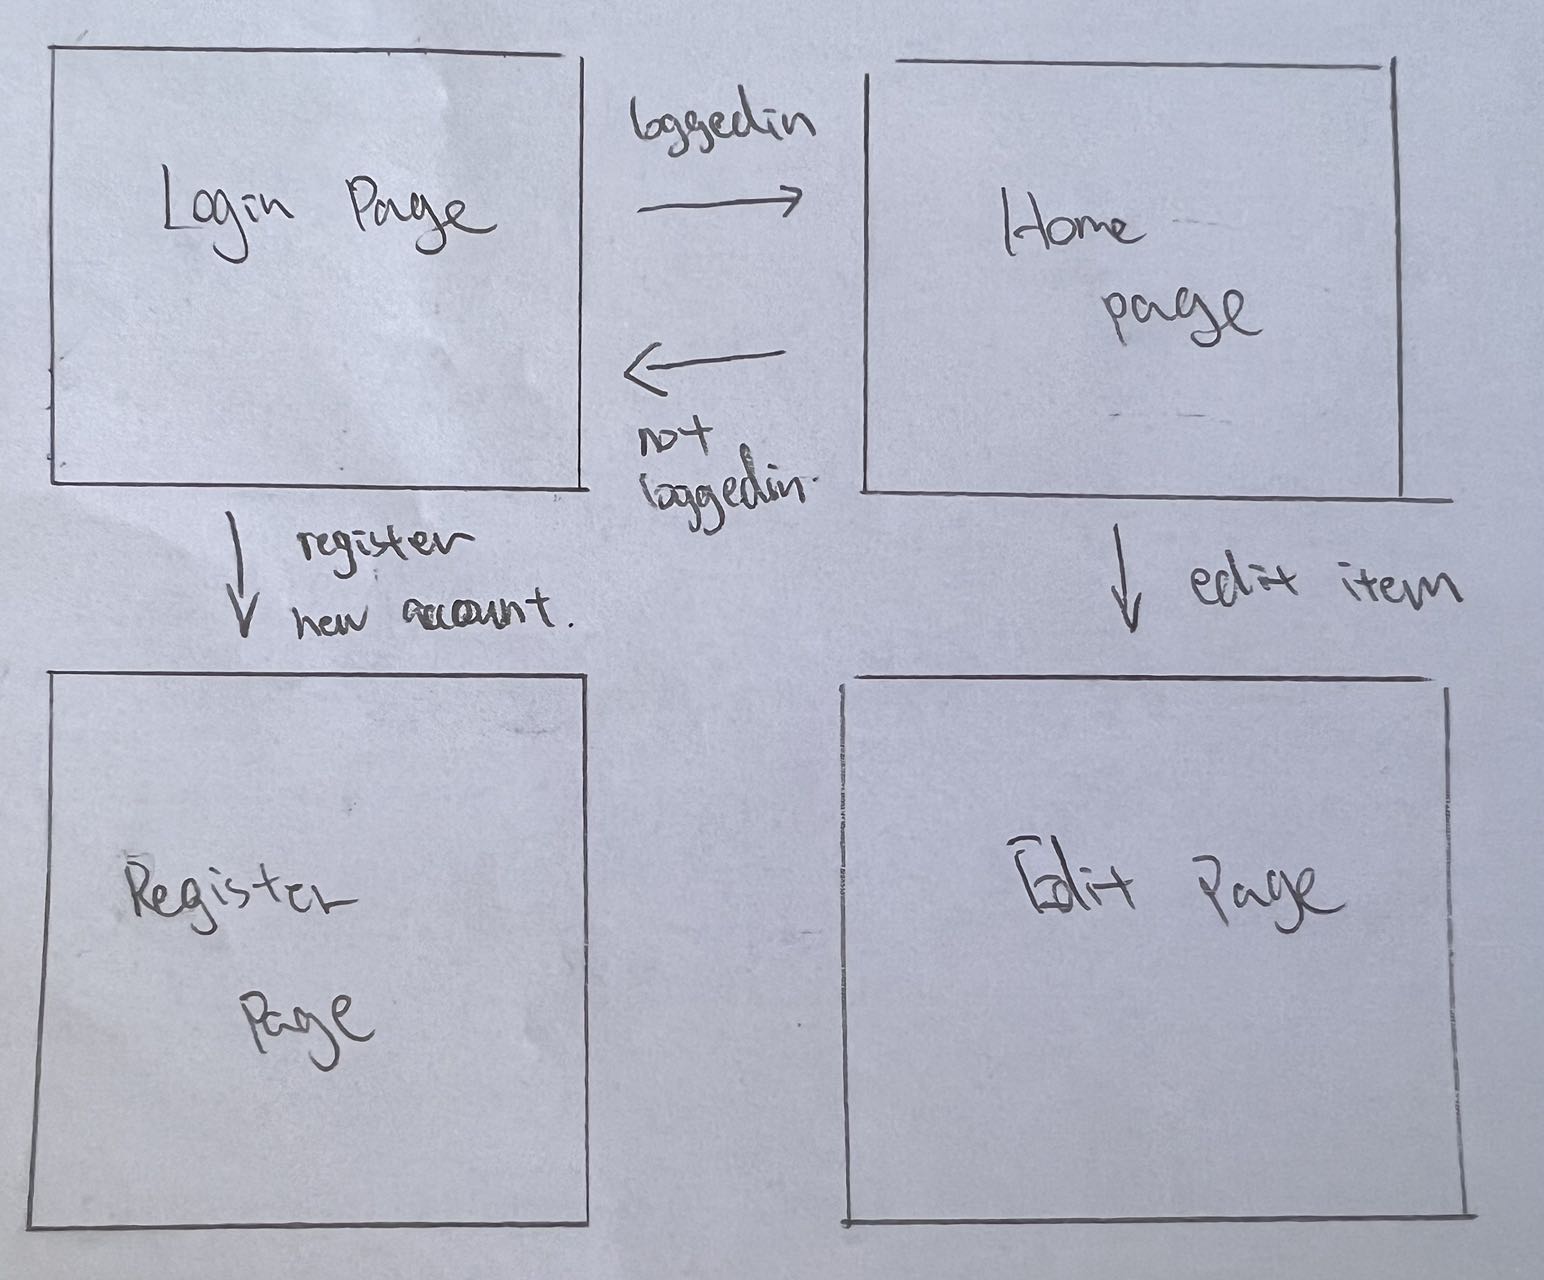 Login Page
loggedin
Home
page
not
loggedin.
register
new account.
edit item
Register
Page
Edit Page